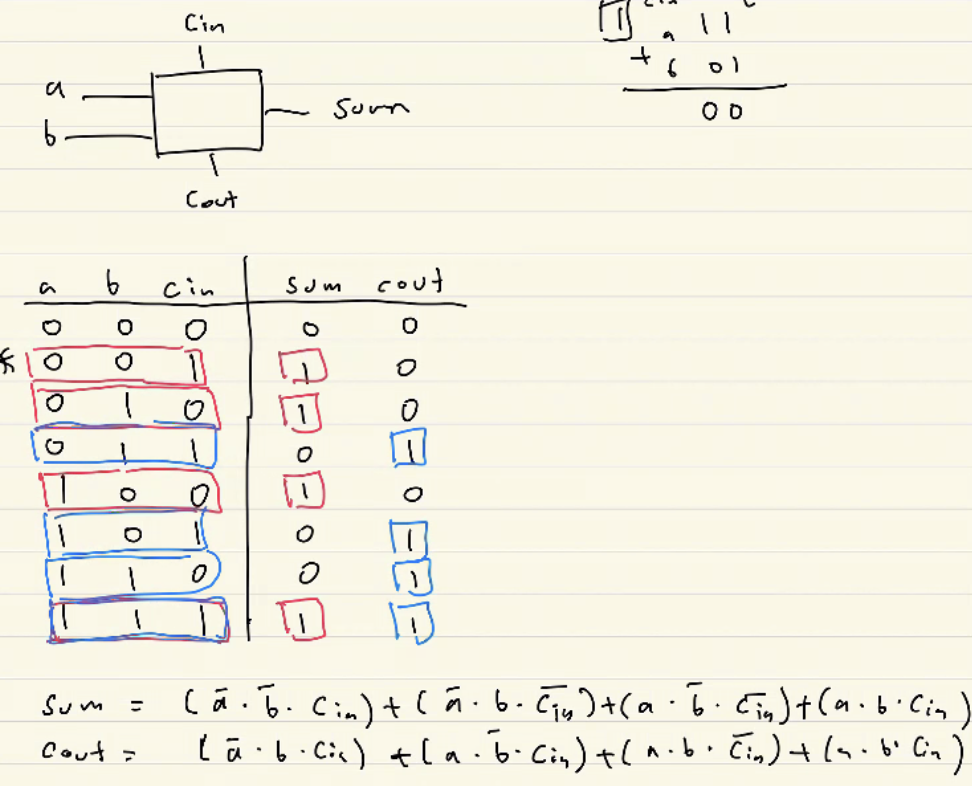 Cin
a
b
Sum
Cout
1
a 11
+ b 01
00
a b cin sum cout
0 0 0 0 0
* 0 0 1 1 0
0 1 0 1 0
0 1 1 0 1
1 0 0 1 0
1 0 1 0 1
1 1 0 0 1
1 1 1 1 1
Sum = (a̅ · b̅ · Cin) + (a̅ · b · C̅i̅n̅) + (a · b̅ · C̅i̅n̅) + (a · b · Cin)
Cout = (a̅ · b · Cin) + (a · b̅ · Cin) + (a · b · C̅i̅n̅) + (a · b · Cin)